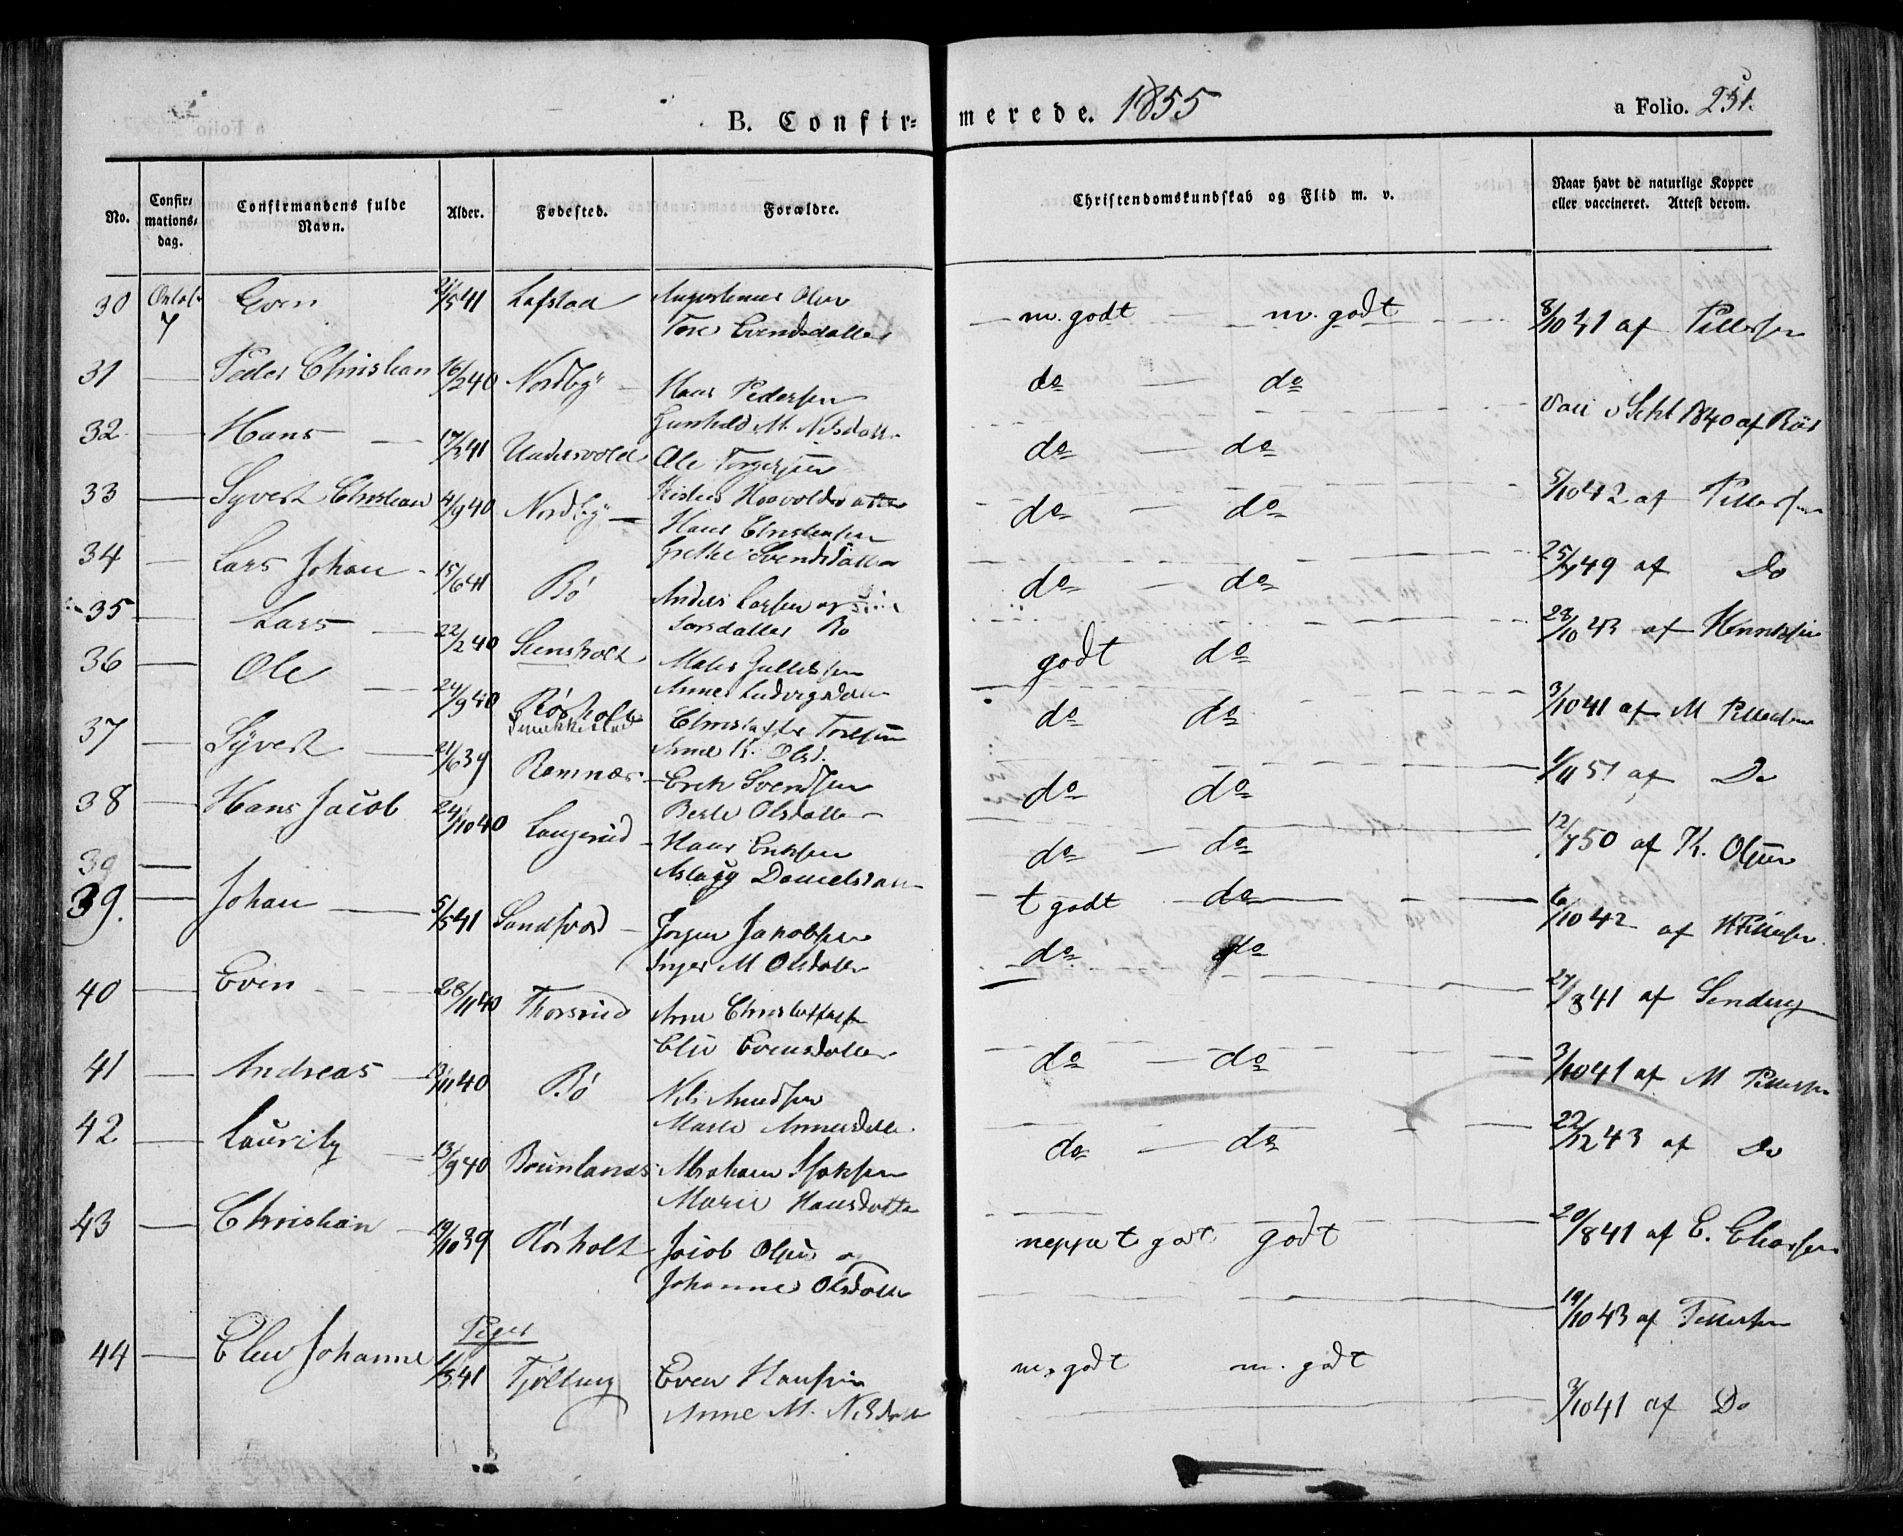 B. Confirmerede. 1855
a Folio. 251.
No. Confirmationsdag. Confirmandens fulde Navn. Alder. Fødested. Forældre. Christendomskundskab og Flid m. v. Naar havt de naturlige Kopper eller vaccineret. Attest derom.
30 Octob. 7 Even 21/5 41 Lofstad
Tore Evendsdatter m. godt m. godt 8/10 41 af Pettersen
31 — Peder Christian 16/2 40 Nordby — Hans Pedersen
Gunhild M. Nilsdatter do — do Vacc i Sept 1840 af
32 — Hans — 17/3 41 Undersvold Ole Torgersen
do — do 5/10 42 af Pettersen
33 — Syvert Christian 4/9 40 Nordby — Hans Christensen
Grethe Svendsdatter do — do 25/7 49 af Do
34 — Lars Johan 15/6 41 Bø Anders Larsen og
Larsdatter Bø do — do 28/10 43 af
35 — Lars — 22/2 40 Stensholt
Anne Ludvigsdatter godt do 3/10 41 af M Pettersen
36 — Ole — 24/9 40 Rørholt Christoffer
Anne K. Olsd. do do 1/11 51 af Do
37 — Syvert — 21/6 39 Ramnæs — Erik Svendsen
Berte Olsdatter do do 12/7 50 af K. Olsen
38 — Hans Jacob 24/10 40 Langerud — Hans Eriksen
Aslaug Danielsdatter do — do 6/10 42 af
39 —
39. — Johan — 5/5 41 — Jørgen Jakobsen
Inger M Olsdatter t godt do
40 — Even — 28/11 40 Thorsrud
Elie Evensdatter do do 27/8 41 af
41 — Andreas — 40 Bø Nils Amundsen
do — do 3/10 41 af M Pettersen
42 — Lauritz — 13/9 40 Brunlanæs Abraham
Marie Hansdatter do — do 22/12 43 af Do
43 — Christian — 19/10 39 Rørholt Jacob Olsen og
Johanne Olsdatter neppe t godt godt 20/8 41 af E.
19/10 43 af Pettersen
Piger
44 — Elen Johanne 1/3 41 Tjølling Even Hansen
Anne M. Nilsdatter m. godt m. godt 3/10 41 af Do